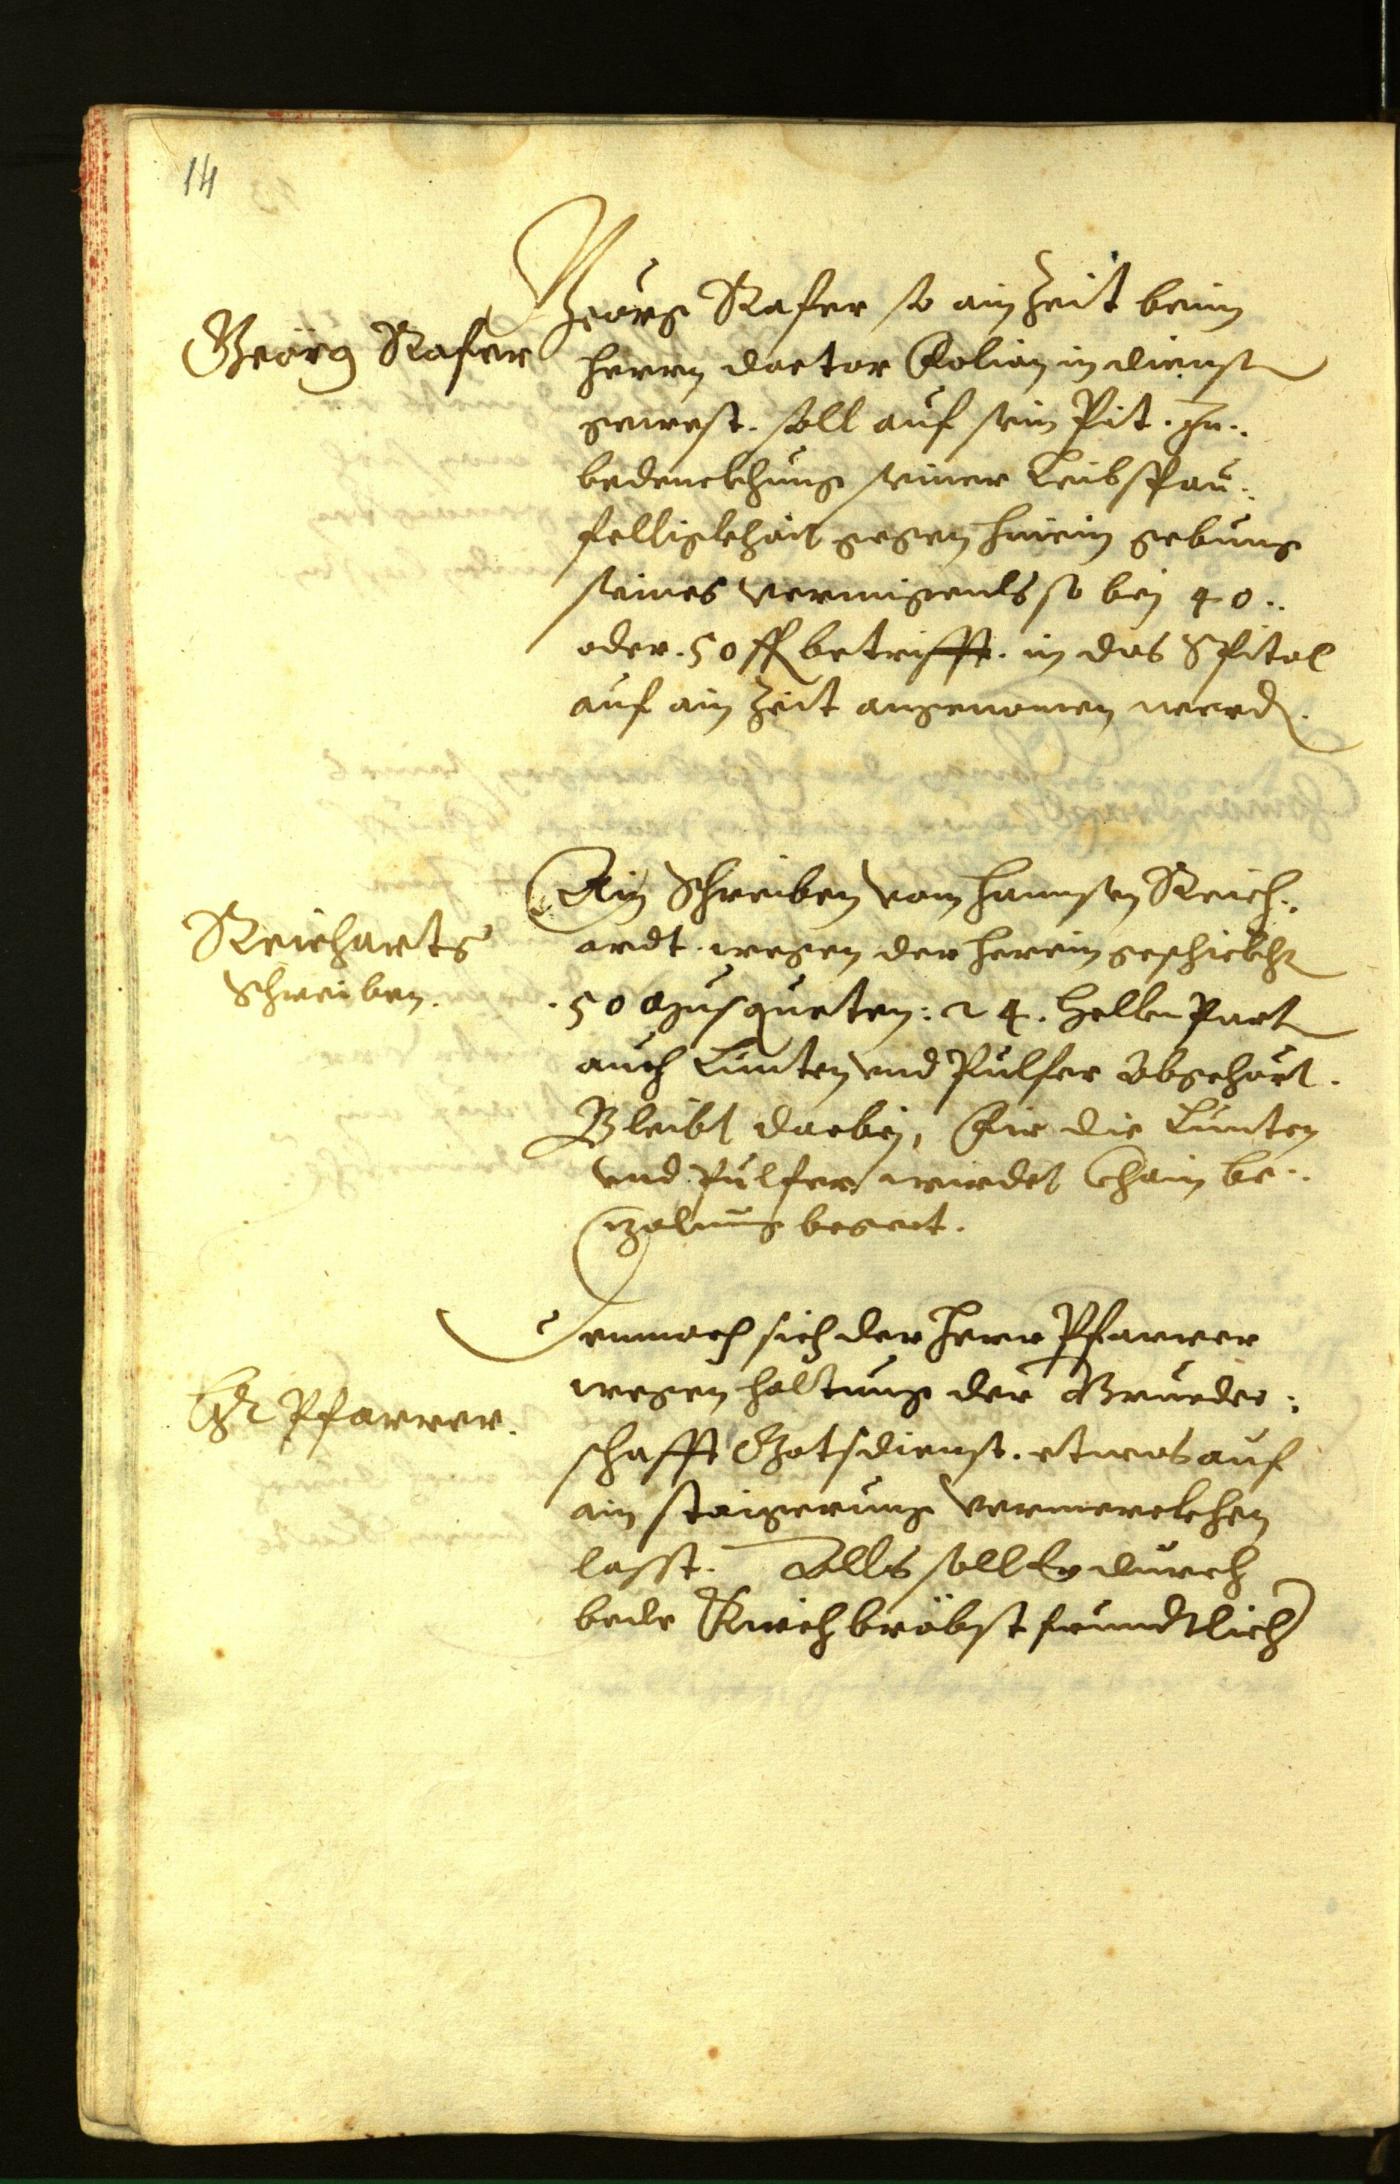 14
Geörg Rafer
Geörg Rafer so ain Zeit beim
herrn doctor Folian in dienst
gewest. soll auf sein Pit. Zu..
bedenckhung seiner Leibspau..
felligkhait gegen hinein gebung
seines vermigens so bej 40..
oder. 50 fl betrifft. in das Spital
auf ain Zeit angenomen werd.
Reicharts
Schreiben.
Ain Schreiben vom hannsen Reich..
ardt. wegen der herein geschickht
.50 Musqueten: 24. hellenPart
auch Lunten vnd Pulfer abgehört.
Bleibt darbej, Fir die Lunten
vnd Pulfer wirdet Khain be..
zalung begert.
Hr Pfarrer.
Demnach sich der herr Pfarrer
wegen haltung der Brueder..
schafft Gotsdienst. etwas auf
ain staigerung vermerckhen
lasst. Alls soll Er durch
bede Kirchbröbst freundtlich